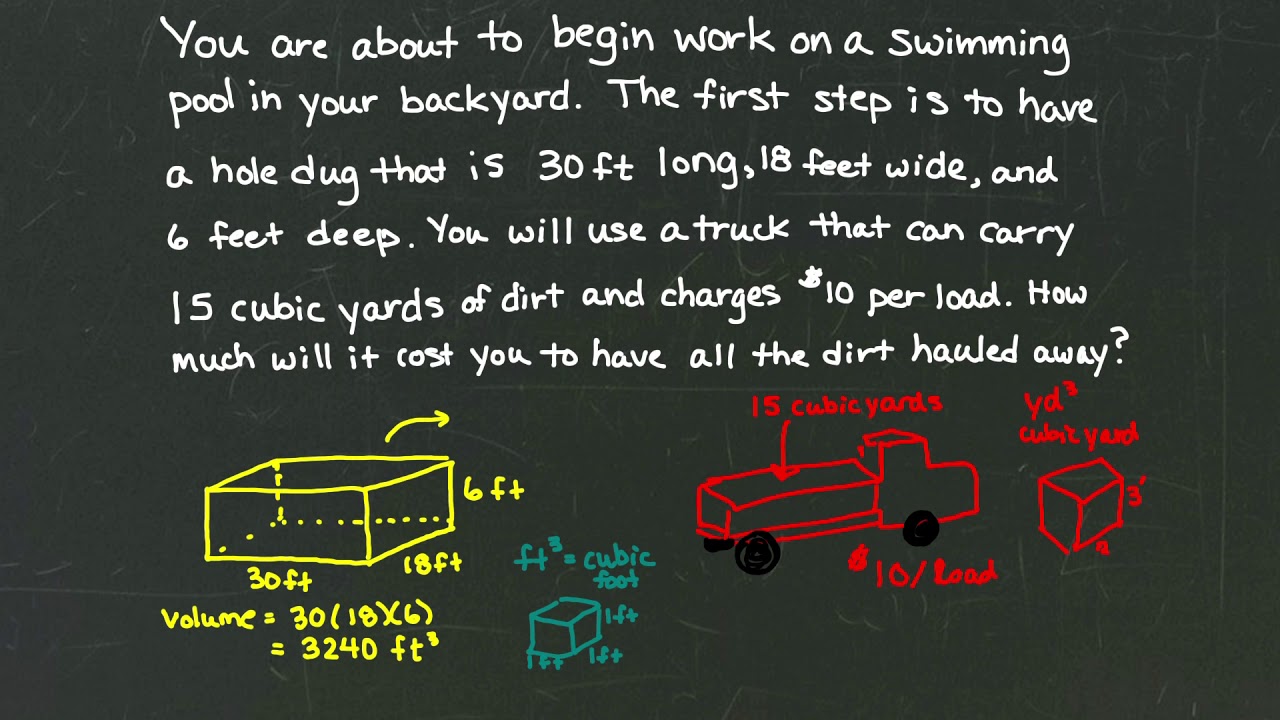 You are about to begin work on a swimming
pool in your backyard. The first step is to have
a hole dug that is 30 ft long, 18 feet wide, and
6 feet deep. You will use a truck that can carry
15 cubic yards of dirt and charges $10 per load. How
much will it cost you to have all the dirt hauled away?
15 cubic yards
yd³
cubic yard
6 ft
3'
18ft
30ft
ft³ = cubic
foot
$10/load
volume = 30(18)(6)
= 3240 ft³
1ft
1ft
1ft